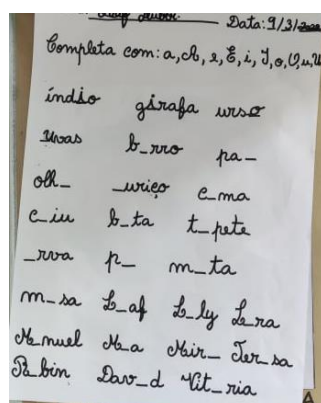 Data: 9/3/
Completa com: a, A, e, E, i, I, o, O, u, U
índio girafa urso
Uvas b_rro pa_
olh_ _uriço c_ma
c_iu b_ta t_pete
_rva p_ m_ta
m_sa L_af L_ly L_ra
M_nuel M_a Mair_ Ter_sa
R_bin Dav_d Vit_ria